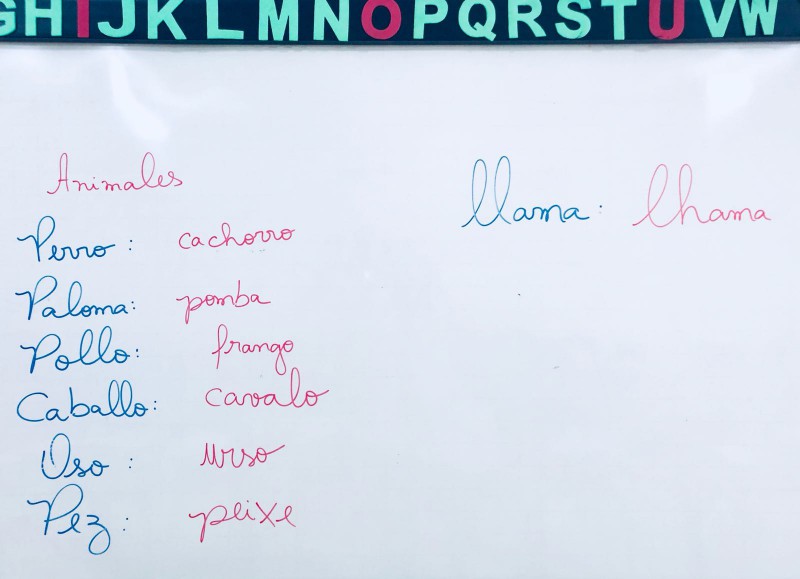 GHIJKLMNOPQRSTUVW
Animales
Perro: cachorro
Paloma: pomba
Pollo: frango
Caballo: cavalo
Oso: urso
Pez: peixe
llama: lhama